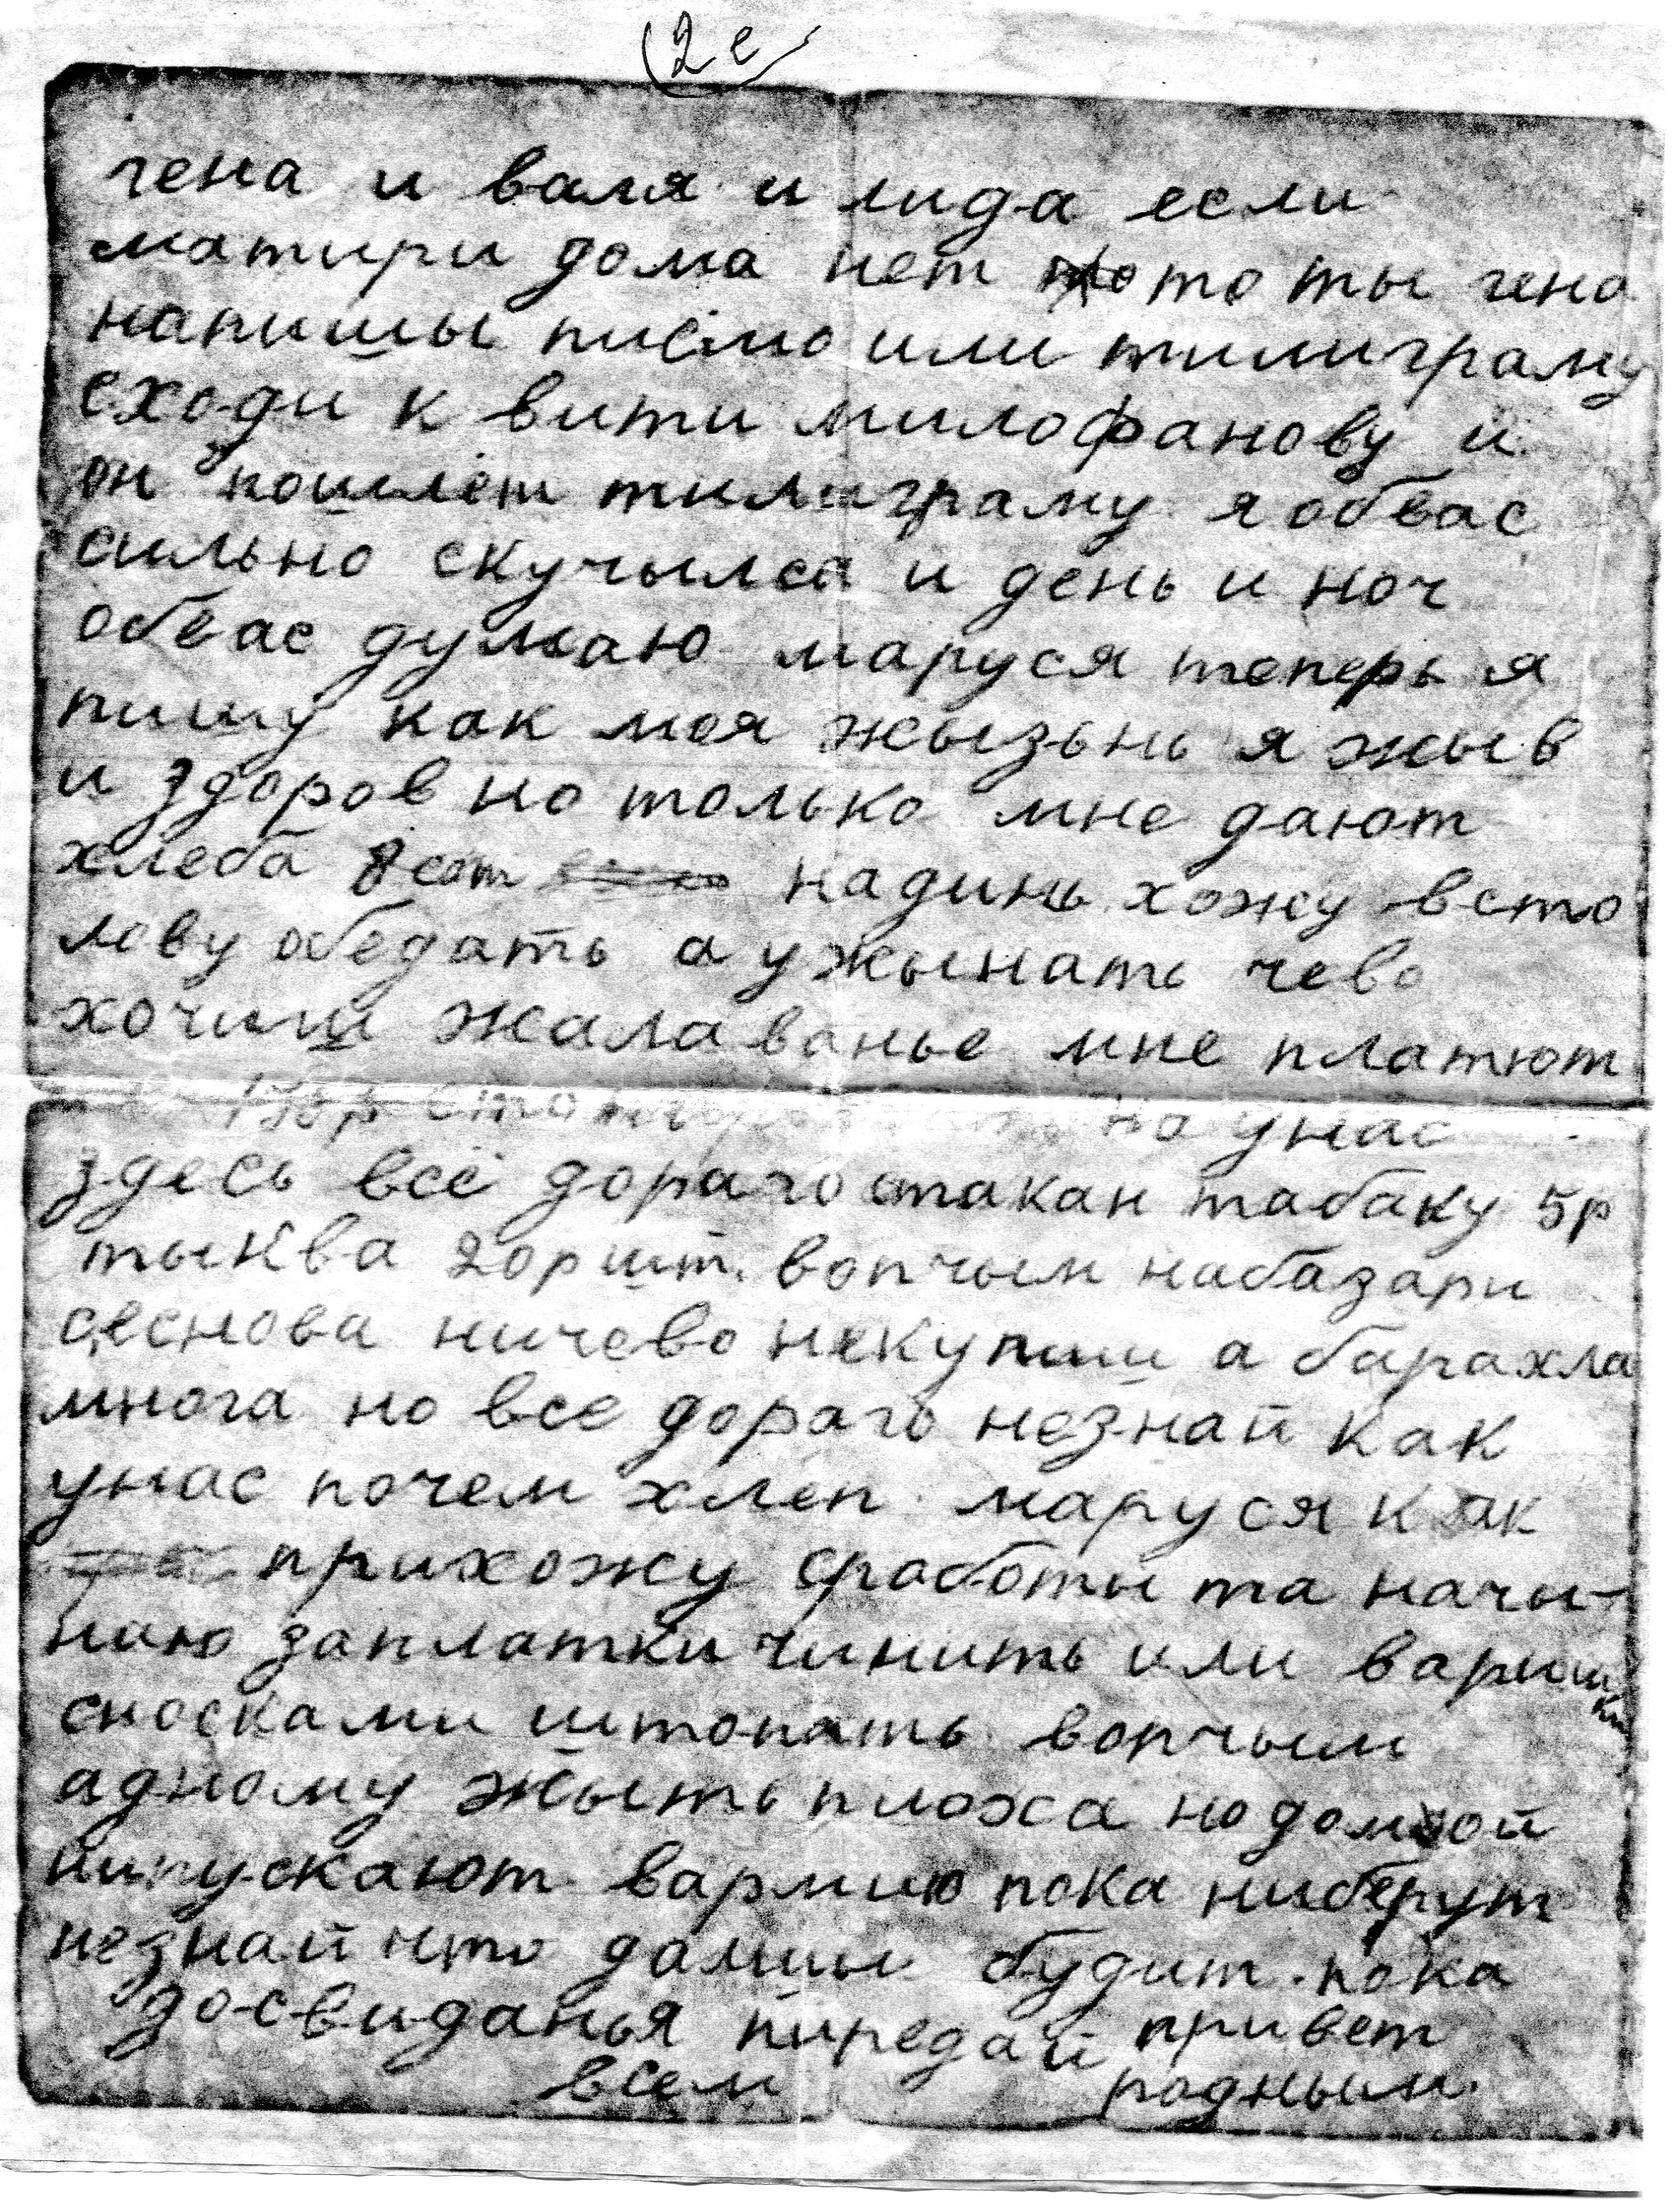 2е
гена и валя и лида если
матири дома нет то ты гена
напишы писмо или тилиграму
сходи к вити милофанову и
он пошлёт тилиграму я обвас
сильно скучылса и день и ноч
обвас думаю маруся теперь я
пишу как моя жызьнь я жыв
и здоров но только мне дают
хлеба 8 сот надинь хожу всто
лову обедать а ужынать чево
хочиш жалаванье мне платют
но унас
здесь всё дораго стакан табаку 5р
тыква 20р шт. вопчым набазари
сеснова ничево некупиш а барахла
многа но все дораго незнай как
унас почем хлеп маруся как
прихожу сработы та начы-
наю заплатки чинить или варишки
сносками штопать вопчым
адному жыть плоха но домой
нипускают вармию пока ниберут
незнай что далшы будит. пока
досвиданья пиредай привет
всем родным.